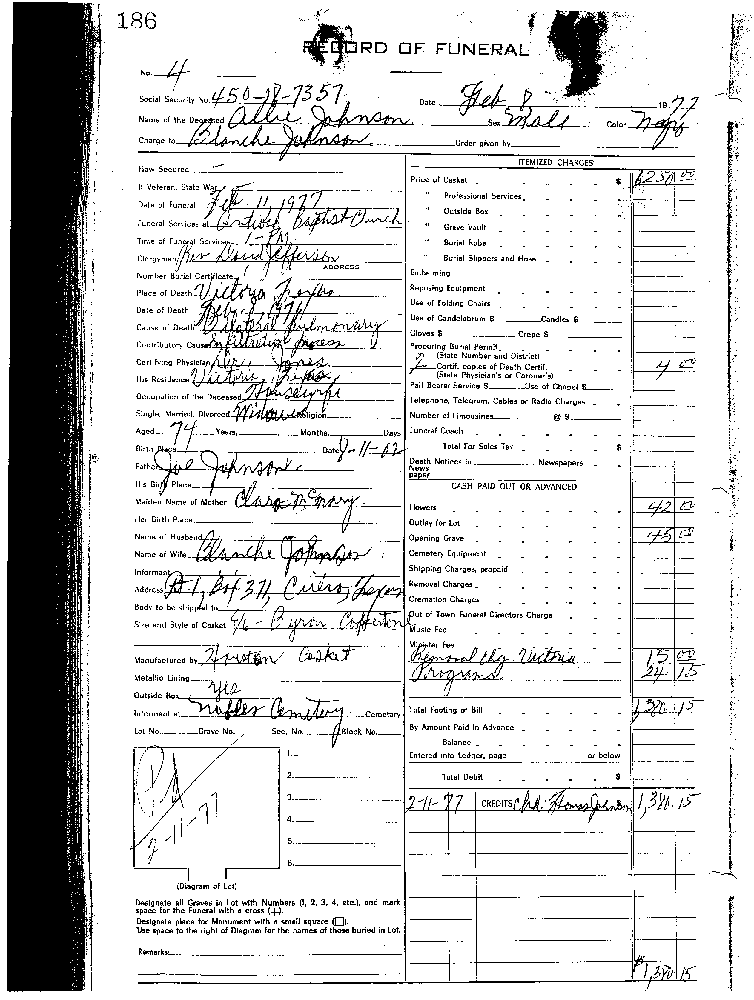 186
RECORD OF FUNERAL
No. 4
Social Security No. 450-78-7357 Date Feb 8 1977
Name of the Deceased Allie Johnson Sex Male Color
Charge to Blanche Johnson Order given by
How Secured
If Veteran, State War
Date of Funeral Feb 11, 1977
Funeral Services at Antioch Baptist Church
Time of Funeral Service 1-PM
Clergyman Rev David Jefferson
ADDRESS
Number Burial Certificate
Place of Death Victoria Texas
Date of Death
Cause of Death Bilateral pulmonary
Contributory Cause infiltration process
Certifying Physician Dr. Jones
His Residence Victoria, Texas
Occupation of the Deceased Housewife
Single, Married, Divorced Widowed Religion
Aged 74 Years, Months, Days
Birth Place Date 8-11-02
Father Joe Johnson
His Birth Place
Maiden Name of Mother Clara McNary
Her Birth Place
Name of Husband
Name of Wife Blanche Johnson
Informant
Address Rt 1, Box 371, Cuero, Texas
Body to be shipped to
Size and Style of Casket 6/6 - Byron Coppertone
Manufactured by Houston Casket
Metallic Lining
Outside Box yes
Interment at Cemetery Cemetery
Lot No. Grave No. Sec. No. Block No.
1.
2.
3.
4.
5.
6.
Pd
2-11-77
(Diagram of Lot)
Designate all Graves in Lot with Numbers (1, 2, 3, 4, etc.), and mark
space for the Funeral with a cross (+).
Designate place for Monument with a small square (□).
Use space to the right of Diagram for the names of those buried in Lot.
Remarks:
ITEMIZED CHARGES
Price of Casket $ 1250 00
" Professional Services
" Outside Box
" Grave Vault
" Burial Robe
" Burial Slippers and Hose
Embalming
Reposing Equipment
Use of Folding Chairs
Use of Candelabrum $ Candles $
Gloves $ Crepe $
Procuring Burial Permit
(State Number and District)
2 Certif. copies of Death Certif. 4 00
(State Physician's or Coroner's)
Pall Bearer Service $ Use of Chapel $
Telephone, Telegram, Cables or Radio Charges
Number of Limousines @ $
Funeral Coach
Total For Sales Tax $
Death Notices in Newspapers
News
paper
CASH PAID OUT OR ADVANCED
Flowers 42 00
Outlay for Lot
Opening Grave 45 00
Cemetery Equipment
Shipping Charges, prepaid
Removal Charges
Cremation Charges
Out of Town Funeral Directors Charge
Music Fee
Minister Fee
Removal chg. Victoria 15 00
Programs 24 15
Total Footing of Bill 1,380.15
By Amount Paid in Advance
Balance
Entered into Ledger, page or below
Total Debit $
2-11-77 CREDITS Chk. Johnson 1,380.15
$1,380 15